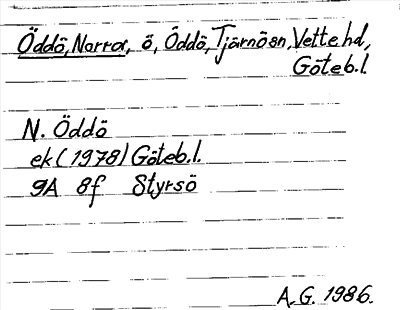 Öddö, Norra, ö, Öddö, Tjärnö sn, Vette hd,
Göteb.l.
N. Öddö
ek (1978) Göteb.l.
9A 8f Styrsö
A.G. 1986.